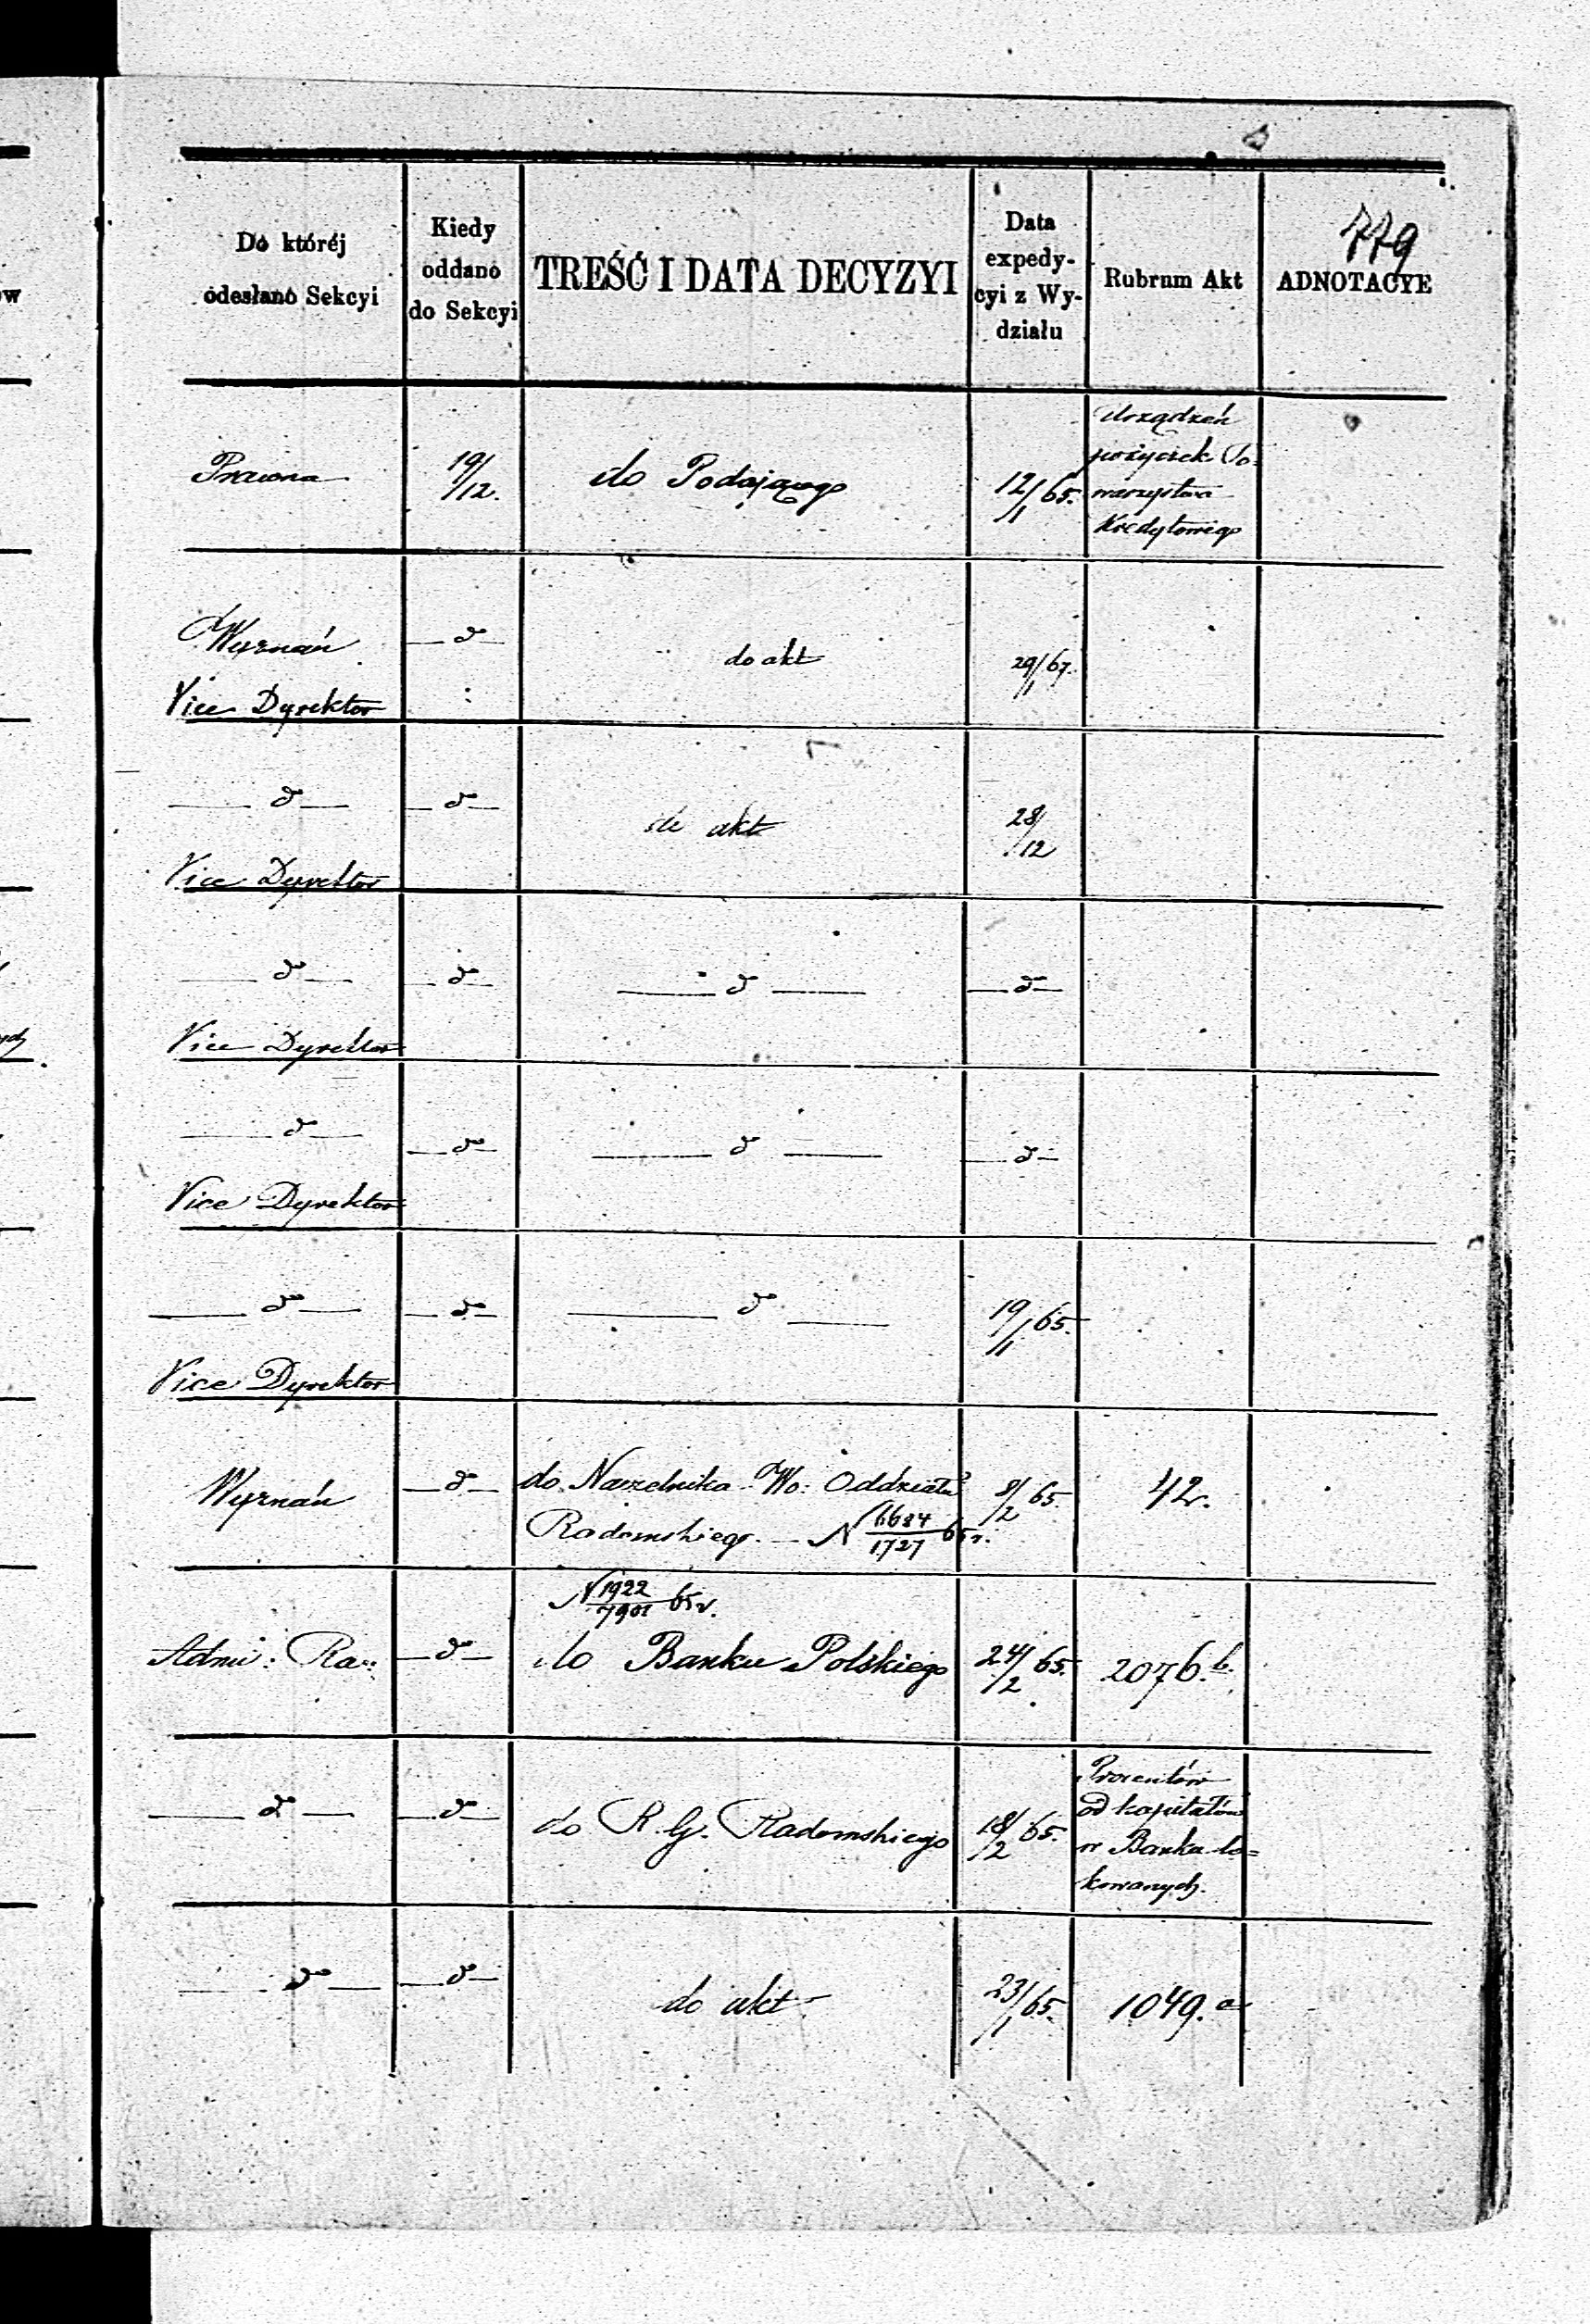 779
Do któréj
odesłano Sekcyi
Kiedy
oddano
do Sekcyi
TREŚĆ I DATA DECYZYI
Data
expedy-
cyi z Wy-
działu
Rubrum Akt
ADNOTACYE
Prawna
19/12.
do Podającego
12/1 65.
Urządzeń
pożyczek To=
warzystwa
Kredytowego
Wyznań
d°
do akt
29/1 67.
Vice Dyrektor
d°
d°
do akt
28/12
Vice Dyrektor
d°
d°
d°
d°
Vice Dyrektor
d°
d°
d°
d°
Vice Dyrektor
d°
d°
d°
19/1 65.
Vice Dyrektor
Wyznań
d°
do Naczelnika Wo: Oddziału
Radomskiego. — N 6684/1727 65 r.
8/2 65.
42.
N 1922/7901 65 r.
Admi: Ra::
d°
do Banku Polskiego
24/2 65.
2076.b.
d°
d°
do R. G. Radomskiego
18/2 65.
Procentów
od kapitałów
w Banku lo=
kowanych.
d°
d°
do akt
23/1 65.
1049.a